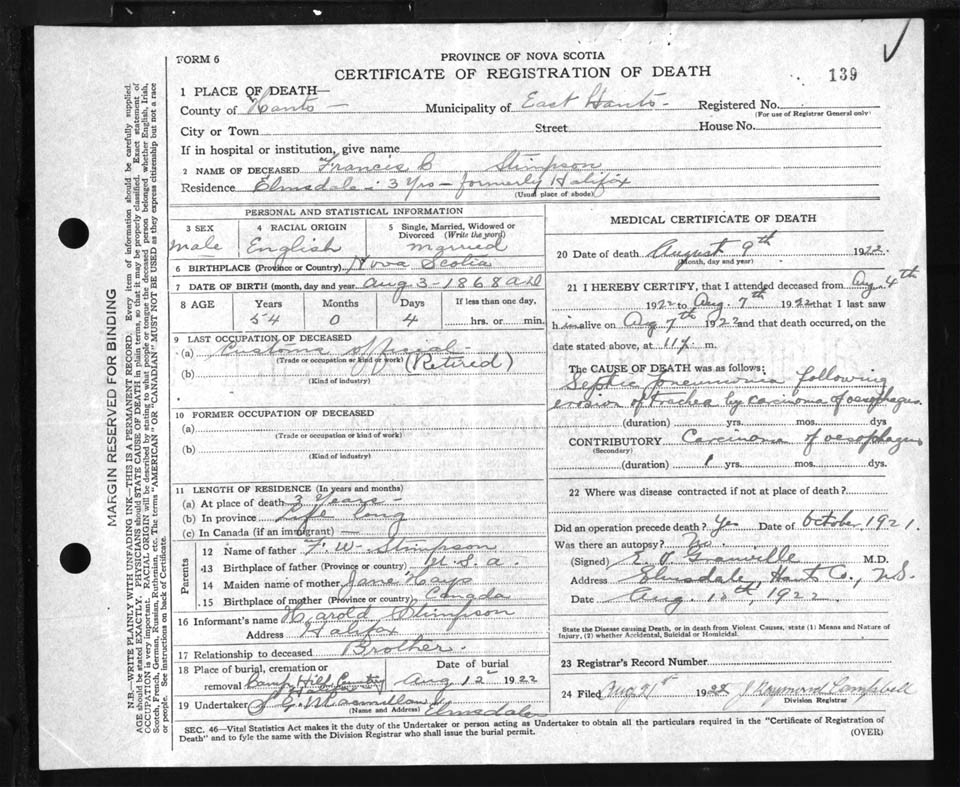 FORM 6
PROVINCE OF NOVA SCOTIA
CERTIFICATE OF REGISTRATION OF DEATH
139
1 PLACE OF DEATH—
County of Hants — Municipality of East Hants - Registered No.
(For use of Registrar General only)
City or Town Street House No.
If in hospital or institution, give name
2 NAME OF DECEASED Francis B Stimpson
Residence Elmsdale - 3 Yrs - formerly Halifax
(Usual place of abode)
PERSONAL AND STATISTICAL INFORMATION
3 SEX
male
4 RACIAL ORIGIN
English
5 Single, Married, Widowed or
Divorced (Write the word)
married
6 BIRTHPLACE (Province or Country) Nova Scotia
7 DATE OF BIRTH (month, day and year Aug 3 - 1868
8 AGE Years Months Days If less than one day,
54 0 4 hrs. or min.
9 LAST OCCUPATION OF DECEASED
(a) Customs official -
(Trade or occupation or kind of work) (Retired)
(b)
(Kind of industry)
10 FORMER OCCUPATION OF DECEASED
(a)
(Trade or occupation or kind of work)
(b)
(Kind of industry)
11 LENGTH OF RESIDENCE (In years and months)
(a) At place of death 3 Years -
(b) In province Life long
(c) In Canada (if an immigrant) —
Parents
12 Name of father F. W. Stimpson
13 Birthplace of father (Province or country) U.S.A.
14 Maiden name of mother Jane Hays
15 Birthplace of mother (Province or country) Canada
16 Informant's name Harold Stimpson
Address Halifax
17 Relationship to deceased Brother.
18 Place of burial, cremation or
removal Camp Hill Date of burial
Aug 12 1922
19 Undertaker Macmillan Elmsdale
(Name and Address)
MEDICAL CERTIFICATE OF DEATH
20 Date of death August 9th 1922
(Month, day and year)
21 I HEREBY CERTIFY, that I attended deceased from Aug. 4th
1922 to Aug. 7th 1922 that I last saw
h im alive on Aug 7th 1922 and that death occurred, on the
date stated above, at 11 m.
The CAUSE OF DEATH was as follows:
Septic pneumonia following
erosion of trachea by carcinoma of oesophagus.
(duration) yrs. mos. dys
CONTRIBUTORY Carcinoma of oesophagus
(Secondary)
(duration) 1 yrs. mos. dys.
22 Where was disease contracted if not at place of death?
Did an operation precede death? Yes Date of October, 1921.
Was there an autopsy? No.
(Signed) Granville M.D.
Address Elmsdale, Hants Co., N.S.
Date Aug. 1922
State the Disease causing Death, or in death from Violent Causes, state (1) Means and Nature of
Injury, (2) whether Accidental, Suicidal or Homicidal.
23 Registrar's Record Number
24 Filed Aug 21st 1922 J Raymond Campbell
Division Registrar
SEC. 46—Vital Statistics Act makes it the duty of the Undertaker or person acting as Undertaker to obtain all the particulars required in the "Certificate of Registration of
Death" and to fyle the same with the Division Registrar who shall issue the burial permit.
(OVER)
MARGIN RESERVED FOR BINDING
N.B.—WRITE PLAINLY WITH UNFADING INK—THIS IS A PERMANENT RECORD. Every item of information should be carefully supplied.
AGE should be stated EXACTLY. PHYSICIANS should STATE CAUSE OF DEATH in plain terms, so that it may be properly classified. Exact statement of
OCCUPATION is very important. RACIAL ORIGIN will be described by stating to what people or tongue the deceased person belonged whether English, Irish,
Scotch, French, German, Russian, Ruthenian, etc. The terms "AMERICAN" OR "CANADIAN" MUST NOT BE USED as they express citizenship but not a race
or people. See instructions on back of Certificate.